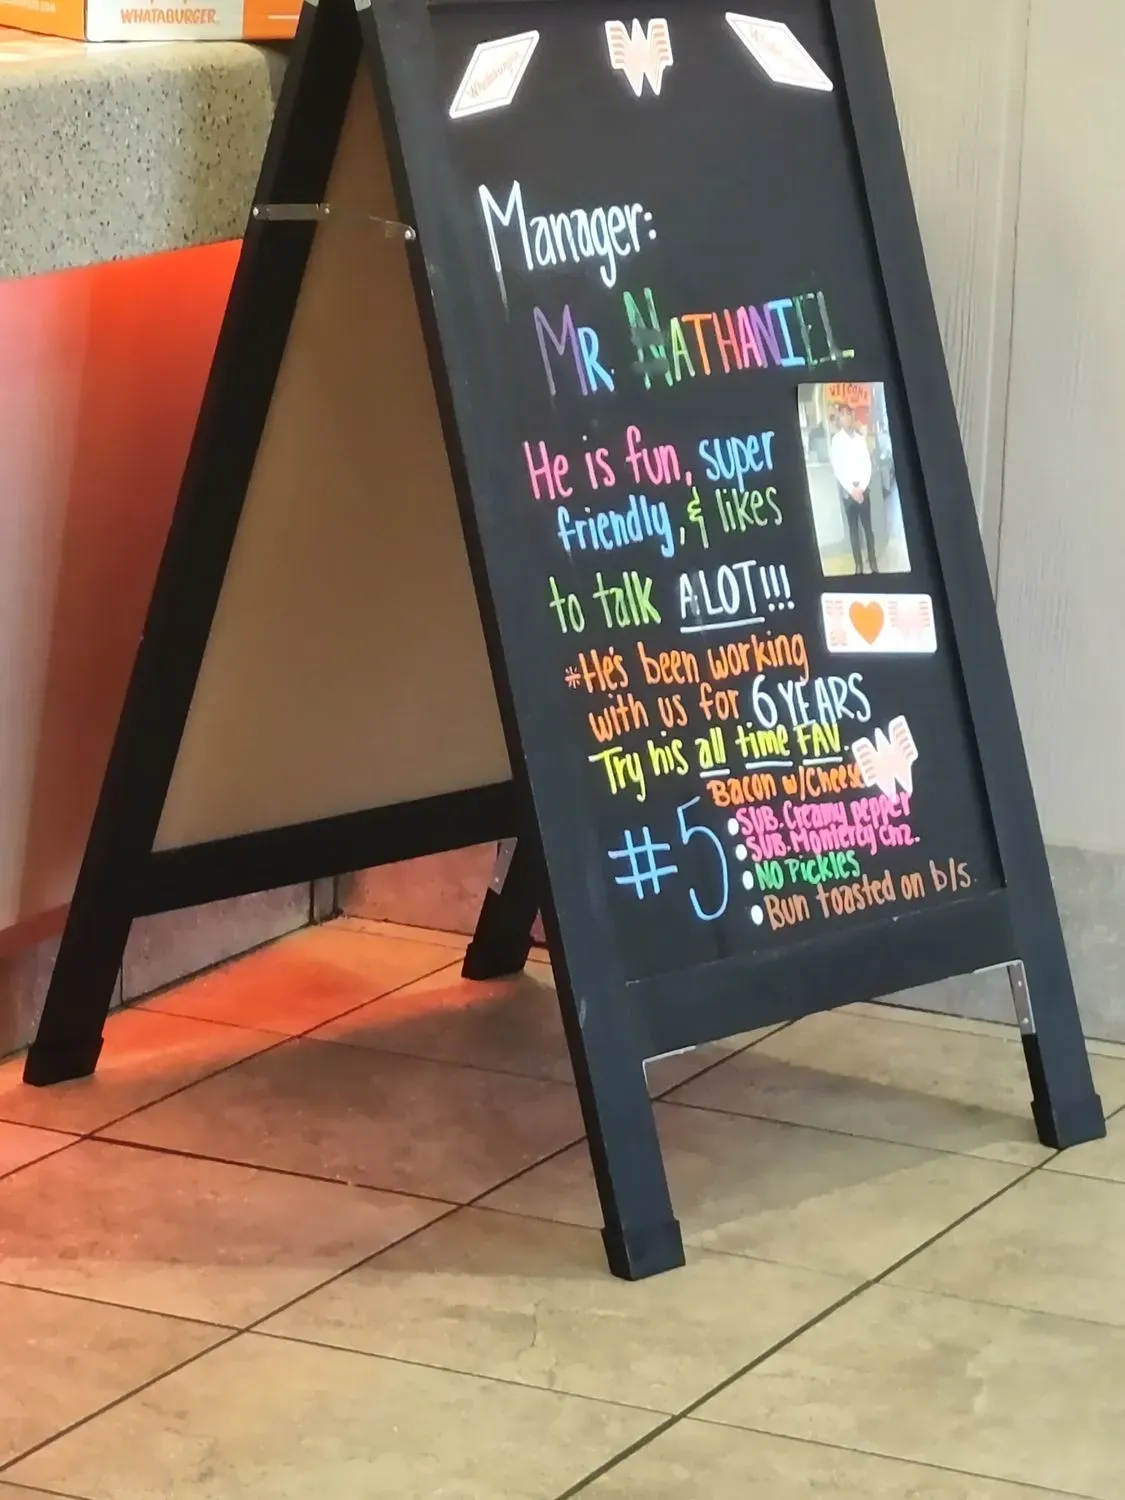 WHATABURGER
Whataburger
Manager:
MR. NATHANIEL
WELCOME
He is fun, super
friendly, & likes
to talk A LOT!!!
*He's been working
with us for 6 YEARS
Try his all time FAV.
Bacon w/Cheese
#5
• SUB. Creamy pepper
• SUB. Monterey Chz.
• NO Pickles
• Bun toasted on b/s.